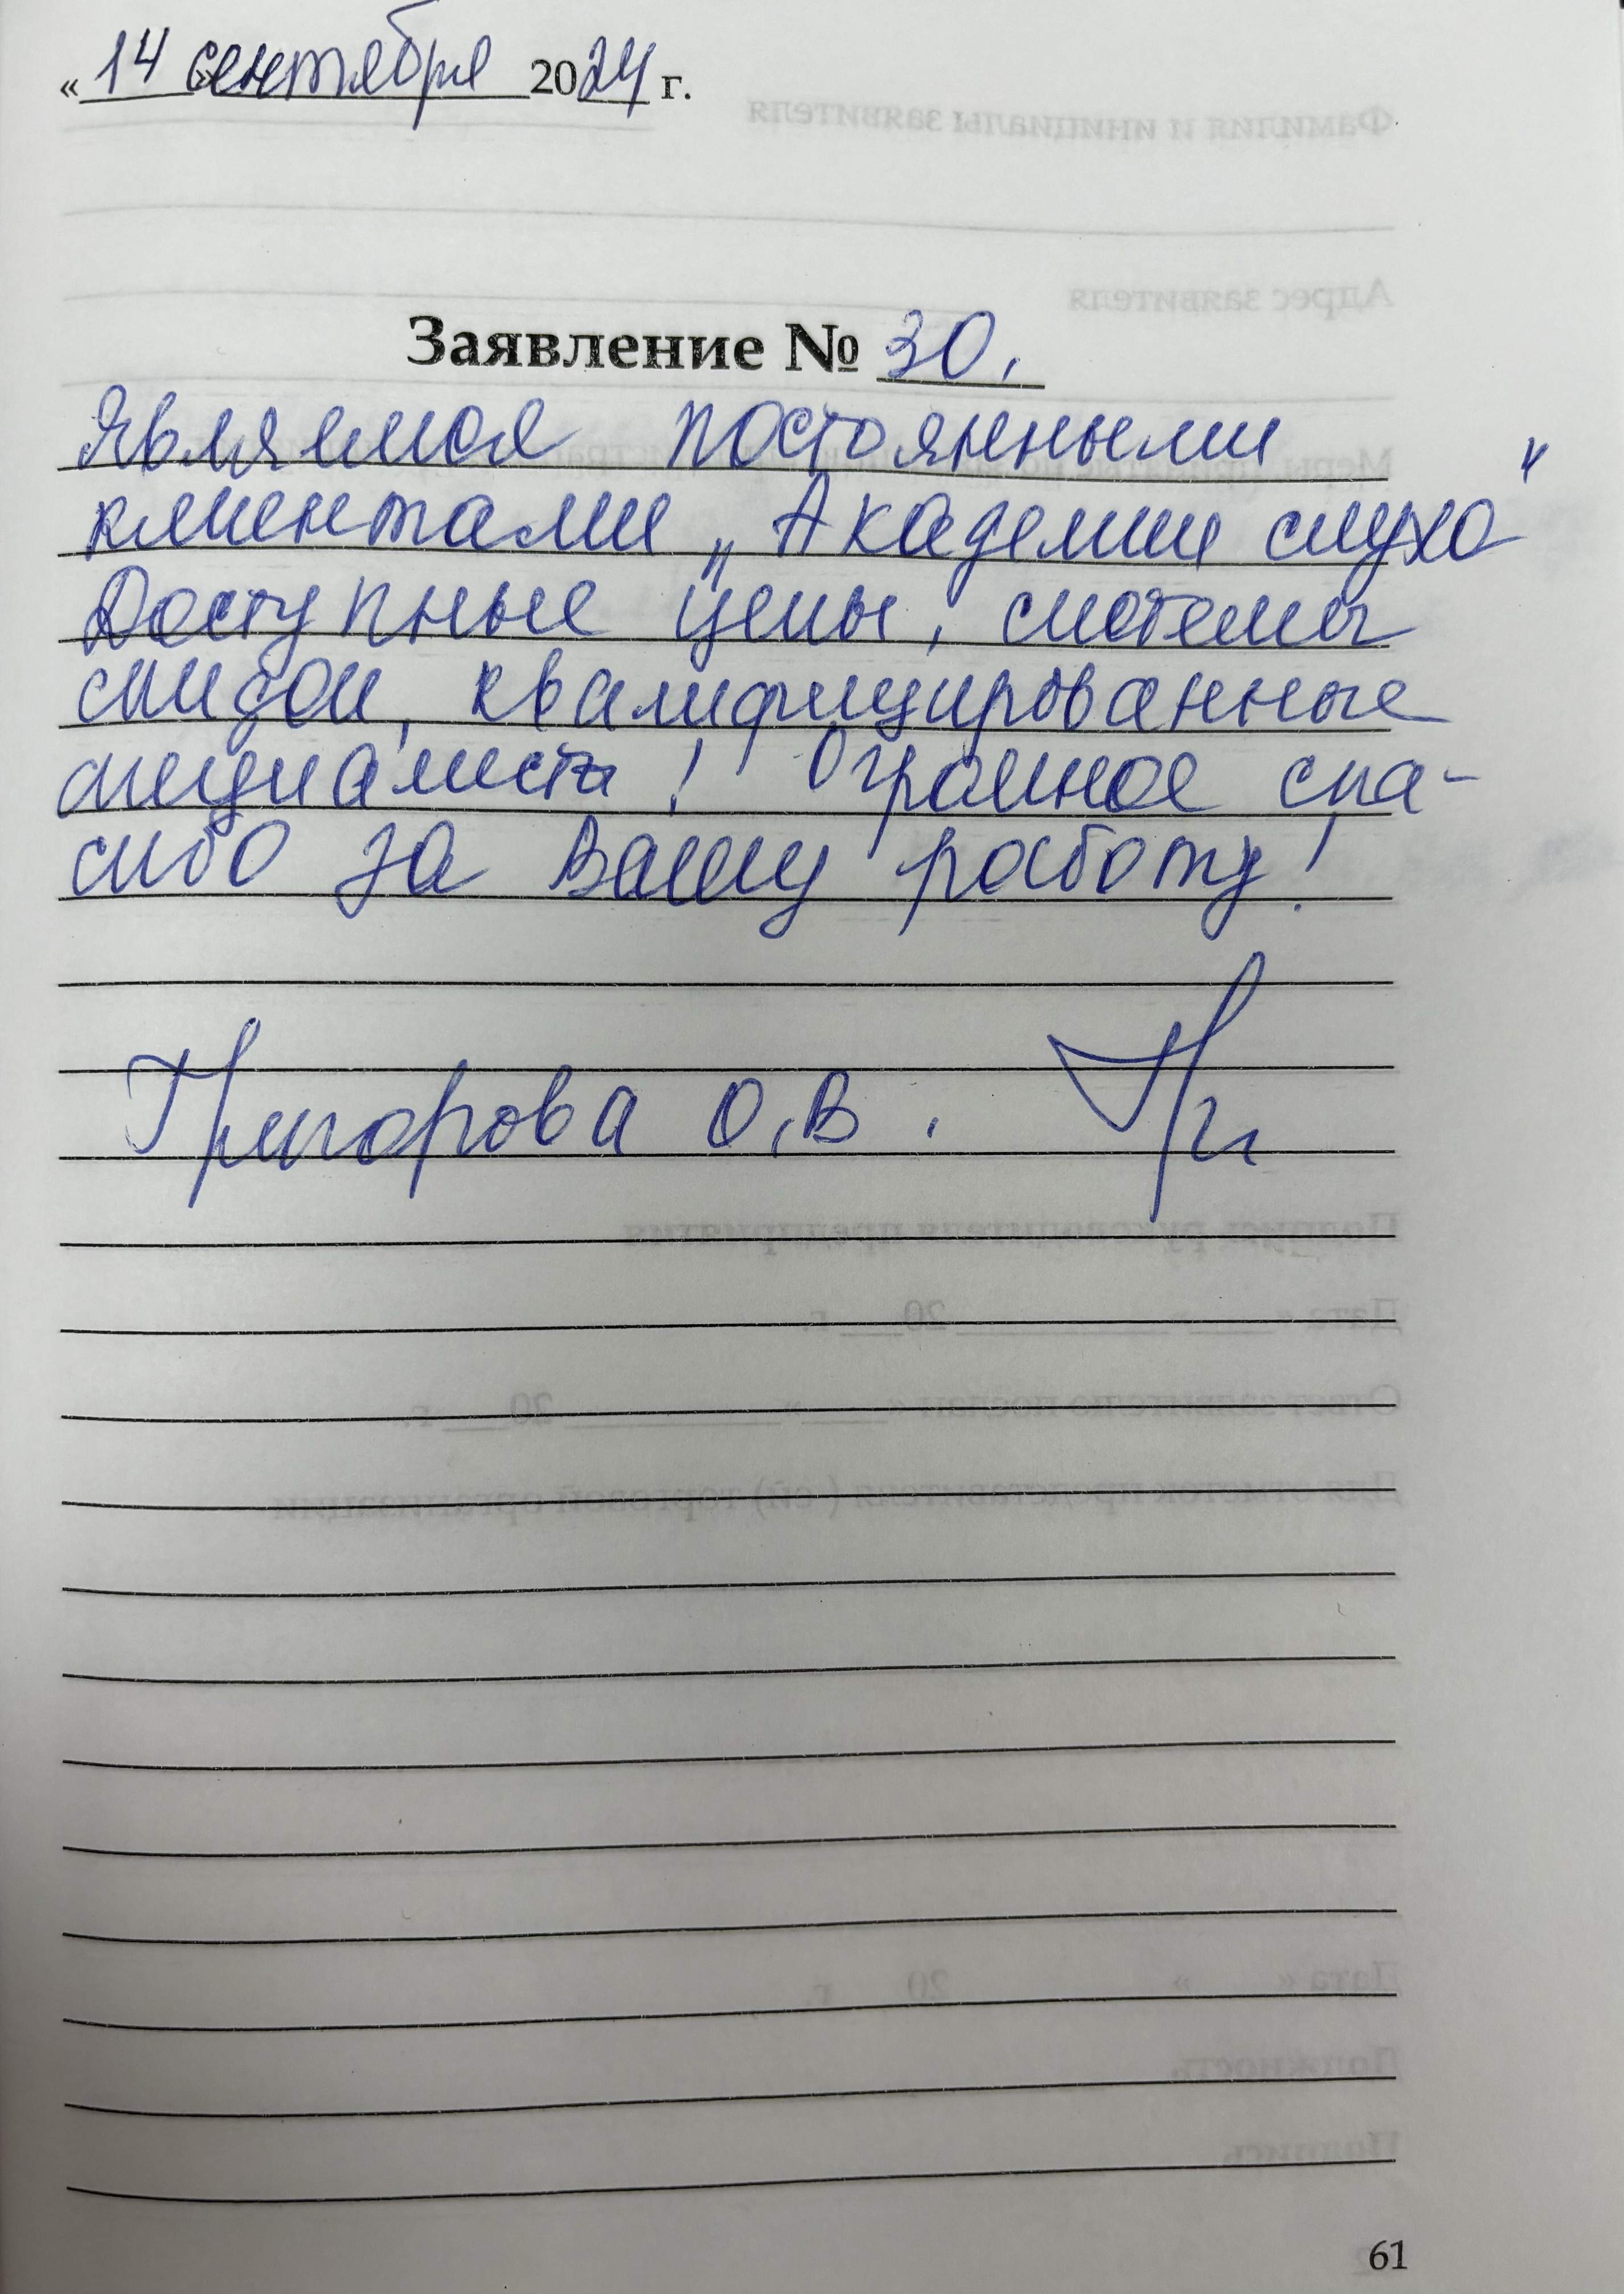 « 14 » сентября 2024 г.
Заявление № 30.
Являемся постоянными
клиентами „Академии слуха"
Доступные цены, системы
скидок, квалифицированные
специалисты! Огромное спа-
сибо за Вашу работу!
Григорова О.В.
61